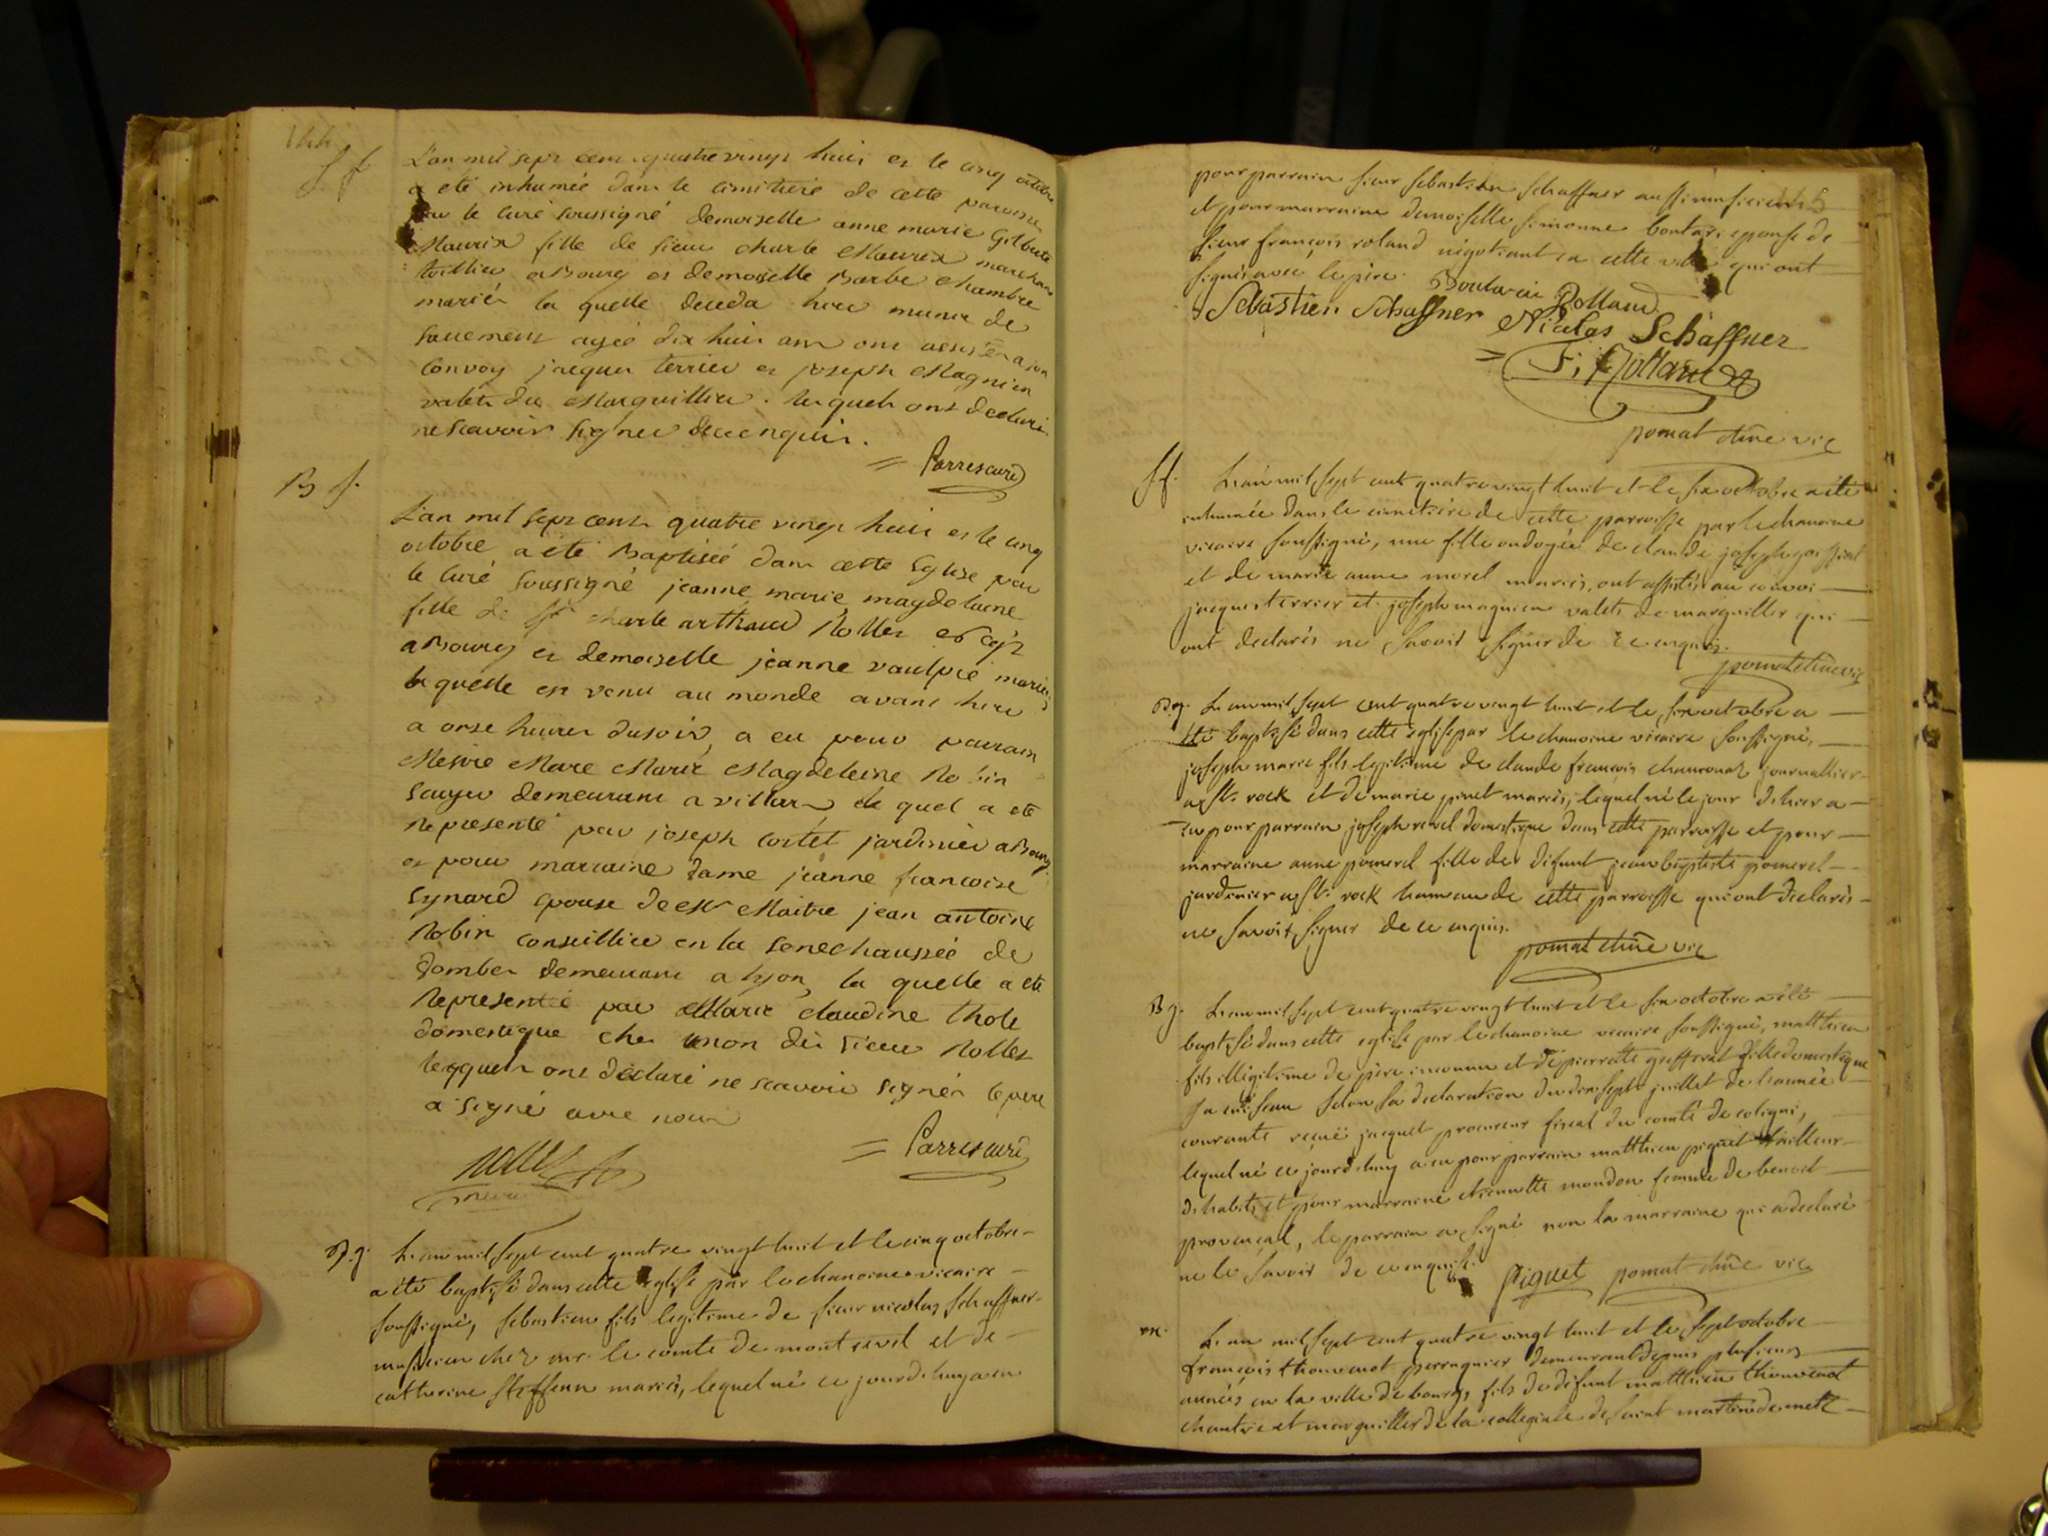 S f
L'an mil sept cent quatre vingt huit et le cinq octobre
a eté inhumée dans le cimitiere de cette paroisse
par le curé soussigné demoiselle anne marie Gilberte
Maurix fille de sieur charle Maurix marchand
toillier a Bourg et demoiselle Barbe chambre
mariés la quelle deceda hier munie de
sacrement agée dix huit ans ont assisté a son
convoy jacque terrier et joseph Magnien
valets du Marguillier. lesquels ont declaré
ne scavoir signer de ce enquis.
= Parres curé
B f.
L'an mil sept cent quatre vingt huit et le cinq
octobre a été Baptisée dans cette Eglise par
le curé soussigné jeanne marie magdelaine
fille de Sr charle arthaud Nollet
a Bourg et demoiselle jeanne vaulpré mariés
la quelle est venu au monde avant hier
a onse heures du soir, a eu pour parrain
Messire Marc Marie Magdeleine Robin
Ecuyer demeurant a villars le quel a eté
representé par joseph cortet jardinier a Bourg
et pour marraine dame jeanne francoise
Synard epouse de Mr Maitre jean antoine
Robin conseillier en la senechaussée de
Dombes demeurant a lyon, la quelle a eté
representé par Marie claudine thole
domestique chez mon dit sieur Nollet
lesquels ont déclaré ne scavoir signér le pere
a signé avec nous
= Parres curé
B. g.
L'an mil sept cent quatre vingt huit et le cinq octobre
a été baptisé dans cette eglise par le chanoine vicaire
soussigné, sebastien fils legitime de sieur nicolas schaffner
musicien chez mr. le comte de montrevel et de
catherine steffenn mariés, lequel né ce jourd'huy a eu
pour parrain sieur sebastien schaffner aussi musicien
et pour marraine demoiselle simonne boutari epouse de
sieur françois roland négotiant en cette ville qui ont
signés avec le père. Boutarin Rolland
Sebastien Schaffner Nicolas Schäffner
= F. Rolland
pomat chne vic
S f.
L'an mil sept cent quatre vingt huit et le six octobre a été
inhumée dans le cimetière de cette parroisse par le chanoine
vicaire soussigné, une fille ondoyée de claude joseph
et de marie anne morel mariés, ont assistés au convoi
jacques terrier et joseph magnien valets de marguiller qui
ont declarés ne savoir signer de ce enquis.
pomat chne vic
B. g.
L'an mil sept cent quatre vingt huit et le six octobre a
été baptisé dans cette eglise par le chanoine vicaire soussigné,
joseph marie fils legitime de claude françois chamonal journallier
a st. rock et de marie pinet mariés, lequel né le jour d'hier a
eu pour parrain joseph revel domestique dans cette parroisse et pour
marraine anne pomerel fille de défunt jean baptiste pomerel
jardinier a st. rock hameau de cette parroisse qui ont declarés
ne savoir signer de ce enquis.
pomat chne vic
B g.
L'an mil sept cent quatre vingt huit et le six octobre a été
baptisé dans cette eglise par le chanoine vicaire soussigné, matthieu
fils illégitime de père inconnu et de pierrette fille domestique
selon sa declaration du dix sept juillet de l'année
courante reçuë jacquet procureur fiscal du comté de coligni,
lequel né ce jourd'huy a eu pour parrain matthieu piguet tailleur
d'habits et pour marraine etiennette mondon femme de benoit
provençal, le parrain a signé non la marraine qui a declaré
ne le savoir de ce enquise.
piguet pomat chne vic
m.
L'an mil sept cent quatre vingt huit et le sept octobre
françois thouvenot perruquier demeurant depuis plusieurs
années en la ville de bourg fils de défunt matthieu thouvenot
chantre et marguiller de la collegiale de saint martin de metz